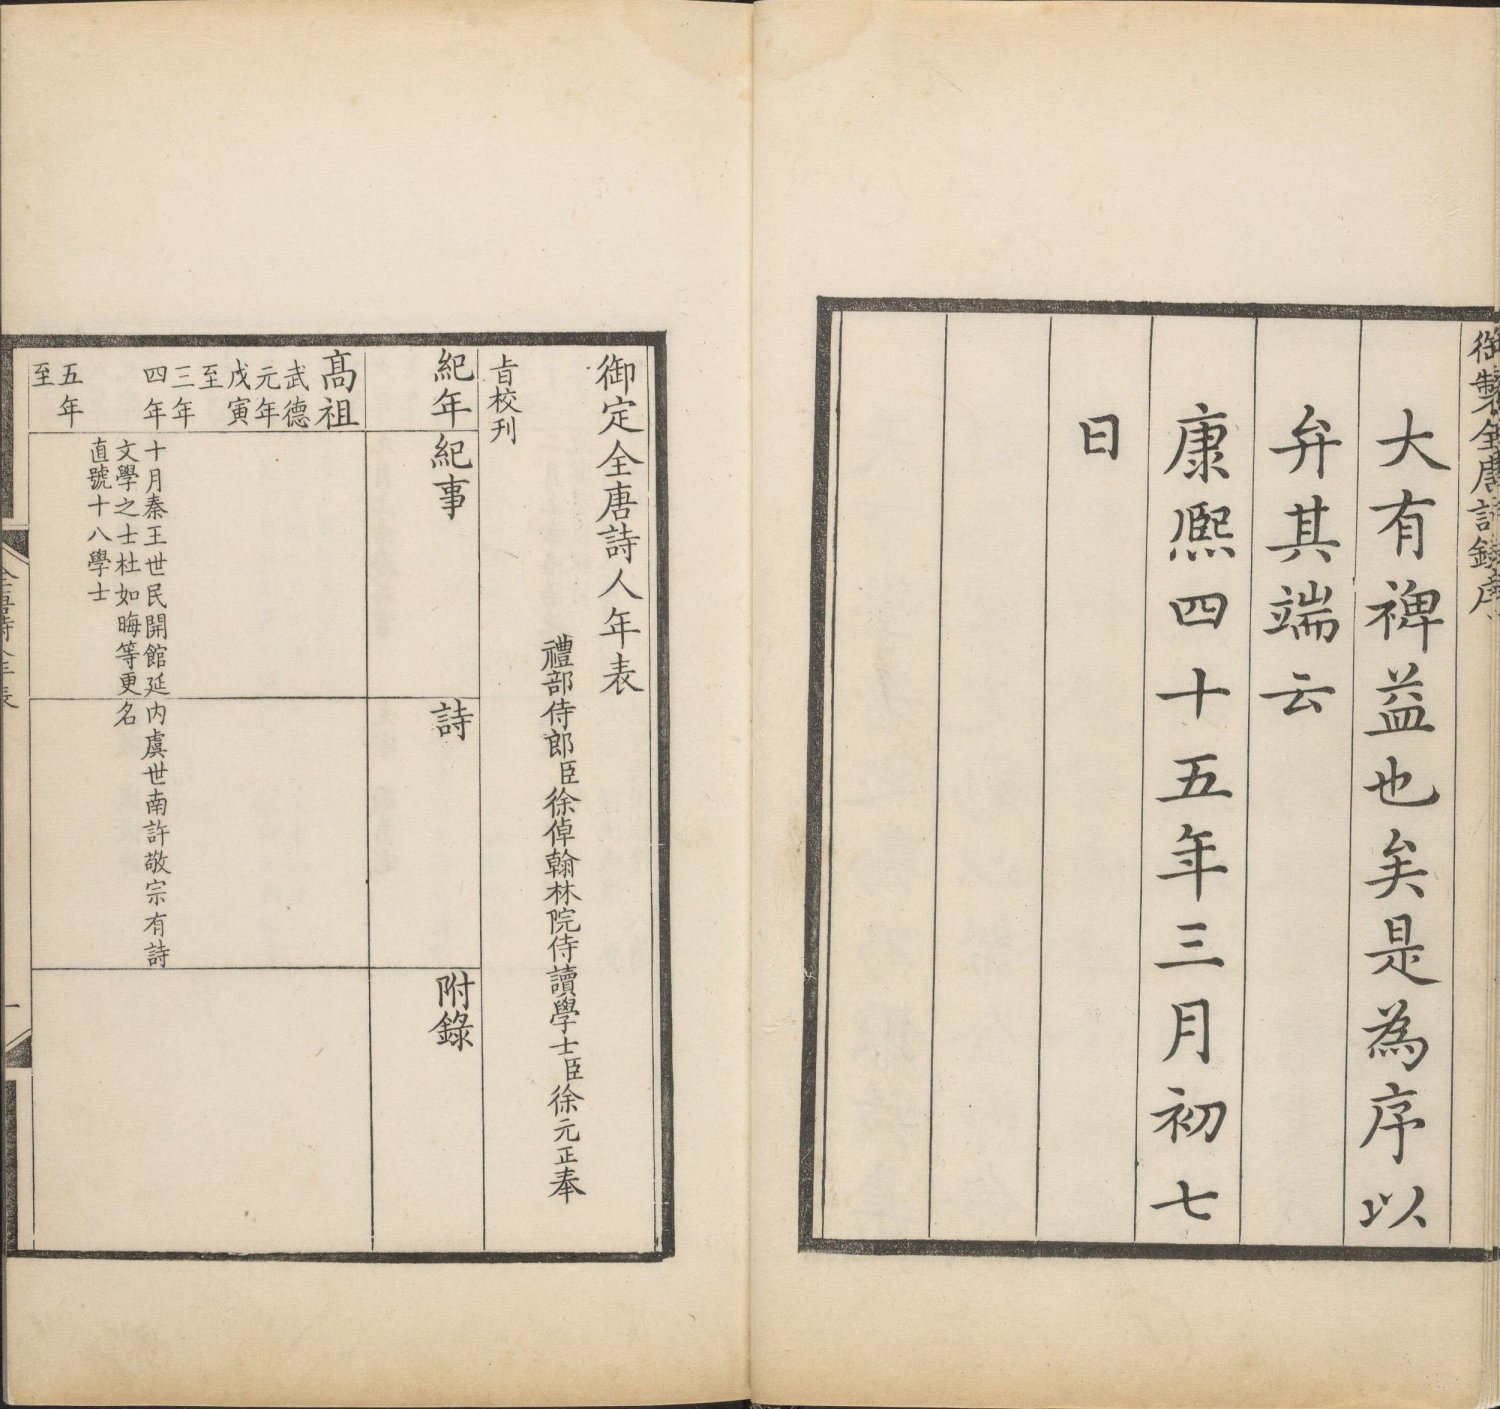 御製全唐詩錄序
大有裨益也矣是為序以
弁其端云
康熙四十五年三月初七
日
御定全唐詩人年表
禮部侍郎臣徐倬翰林院侍讀學士臣徐元正奉
旨校刊
紀年
紀事
詩
附錄
高祖
武德
元年
戊寅
至
三年
四年
十月秦王世民開館延
文學之士杜如晦等更
直號十八學士
內虞世南許敬宗有詩
名
五年
至
全唐詩人年表
一